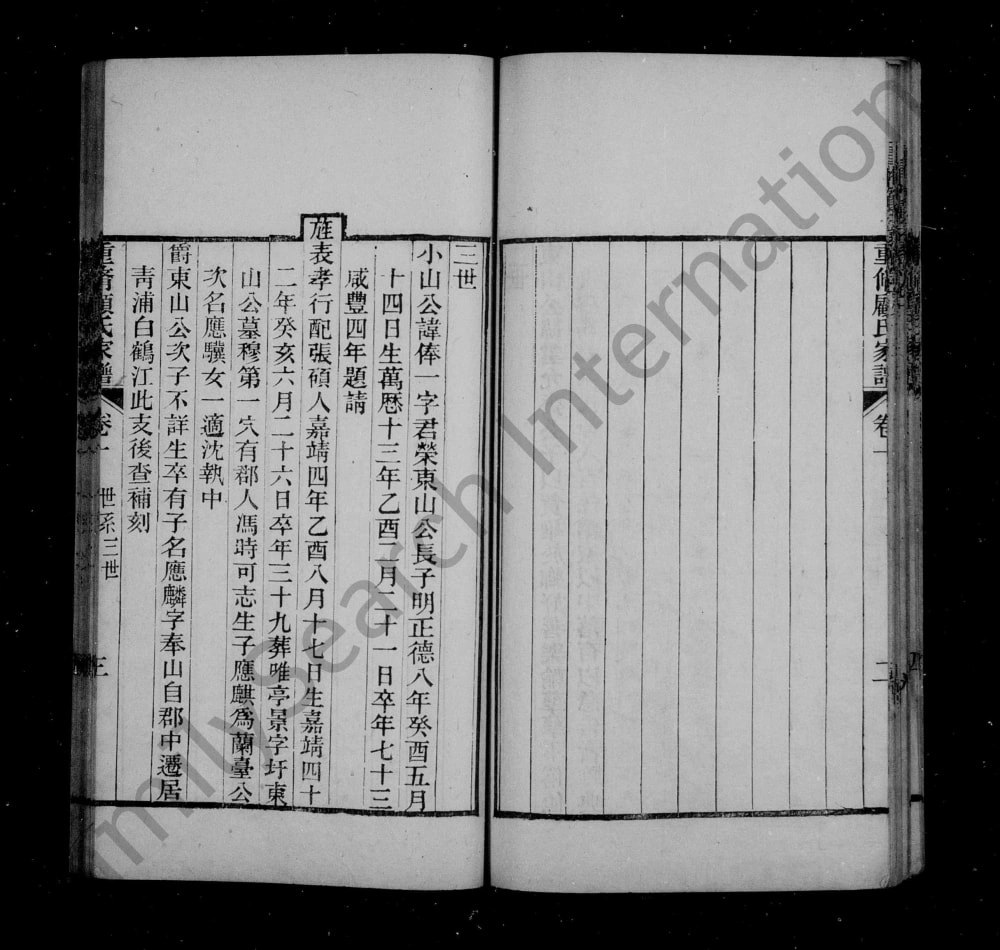 重修顧氏家譜 卷一 二
三世
小山公諱俸一字君榮東山公長子明正德八年癸酉五月
十四日生萬曆十三年乙酉二月二十一日卒年七十三
咸豐四年題請
旌表孝行配張碩人嘉靖四年乙酉八月十七日生嘉靖四十
二年癸亥六月二十六日卒年三十九葬唯亭景字圩東
山公墓穆第一穴有郡人馮時可志生子應麒爲蘭臺公
次名應驥女一適沈執中
爵東山公次子不詳生卒有子名應麟字奉山自郡中遷居
靑浦白鶴江此支後查補刻
重脩顧氏家譜 卷一 世系三世 三
FamilySearch International